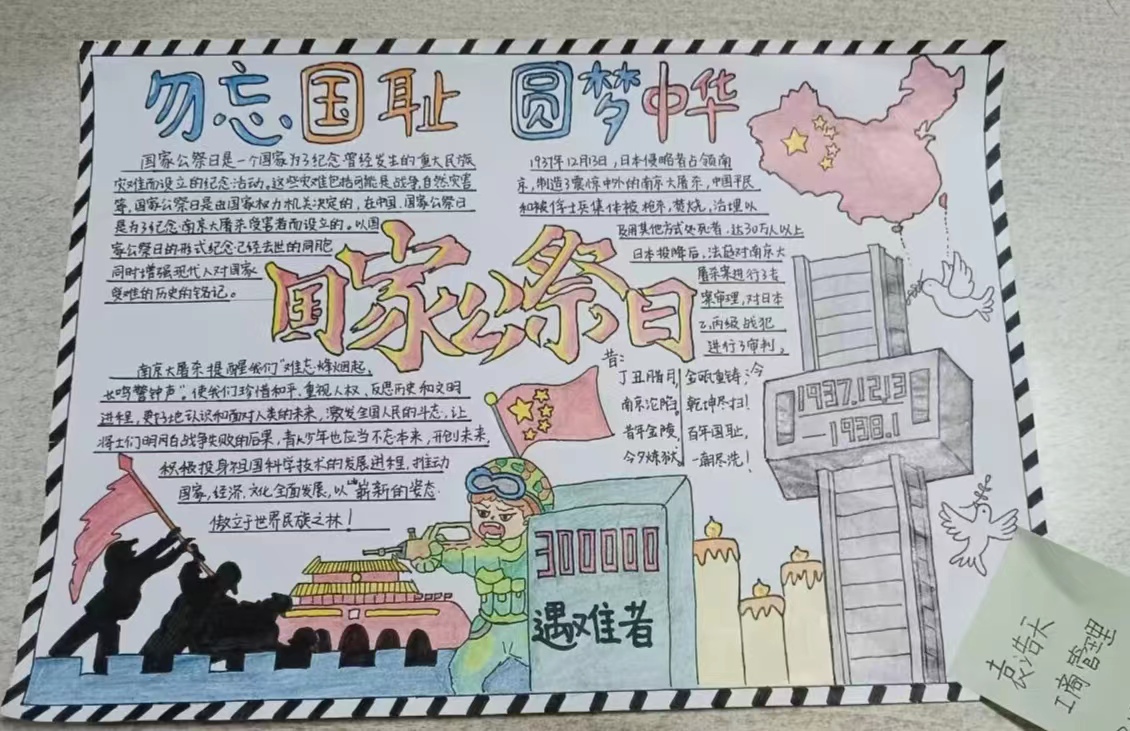 勿忘国耻 圆梦中华
国家公祭日是一个国家为了纪念曾经发生的重大民族
灾难而设立的纪念活动。这些灾难包括可能是战争,自然灾害
等,国家公祭日是由国家权力机关决定的,在中国,国家公祭日
是为了纪念南京大屠杀受害者而设立的。以国
家公祭日的形式纪念已经去世的同胞
同时增强现代人对国家
受难的历史的铭记。
1937年12月13日,日本侵略者占领南
京,制造了震惊中外的南京大屠杀,中国平民
和被俘士兵集体被枪杀,焚烧,活埋以
及用其他方式处死者,达30万人以上
日本投降后,法庭对南京大
屠杀案进行了专
案审理,对日本
乙,丙级战犯
进行了审判。
国家公祭日
南京大屠杀提醒我们"难忘烽烟起,
长鸣警钟声"。使我们珍惜和平,重视人权,反思历史和文明
进程,更好地认识和面对人类的未来,激发全国人民的斗志,让
将士们明白战争失败的后果,青少年也应当不忘本来,开创未来,
积极投身祖国科学技术的发展进程,推动
国家,经济,文化全面发展,以"崭新的姿态
傲立于世界民族之林!
昔:
丁丑腊月,
南京沦陷。
昔年金陵,
今夕炼狱,
今
金瓯重铸;
乾坤尽扫!
百年国耻,
一朝尽洗!
1937.12.13
—1938.1
300000
遇难者
袁浩天
工商管理